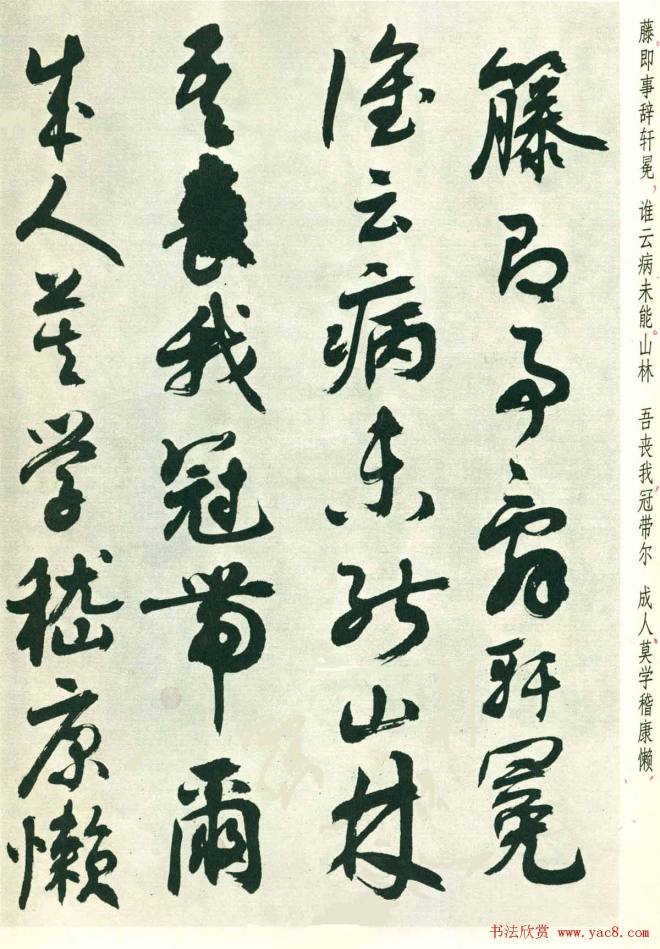 籐即事辭軒冕
誰云病未能山林
吾喪我冠帶爾
成人莫学嵇康懶
藤即事辞轩冕，谁云病未能。山林　吾丧我冠带尔　成人莫学稽康懒，
书法欣赏 www.yac8.com